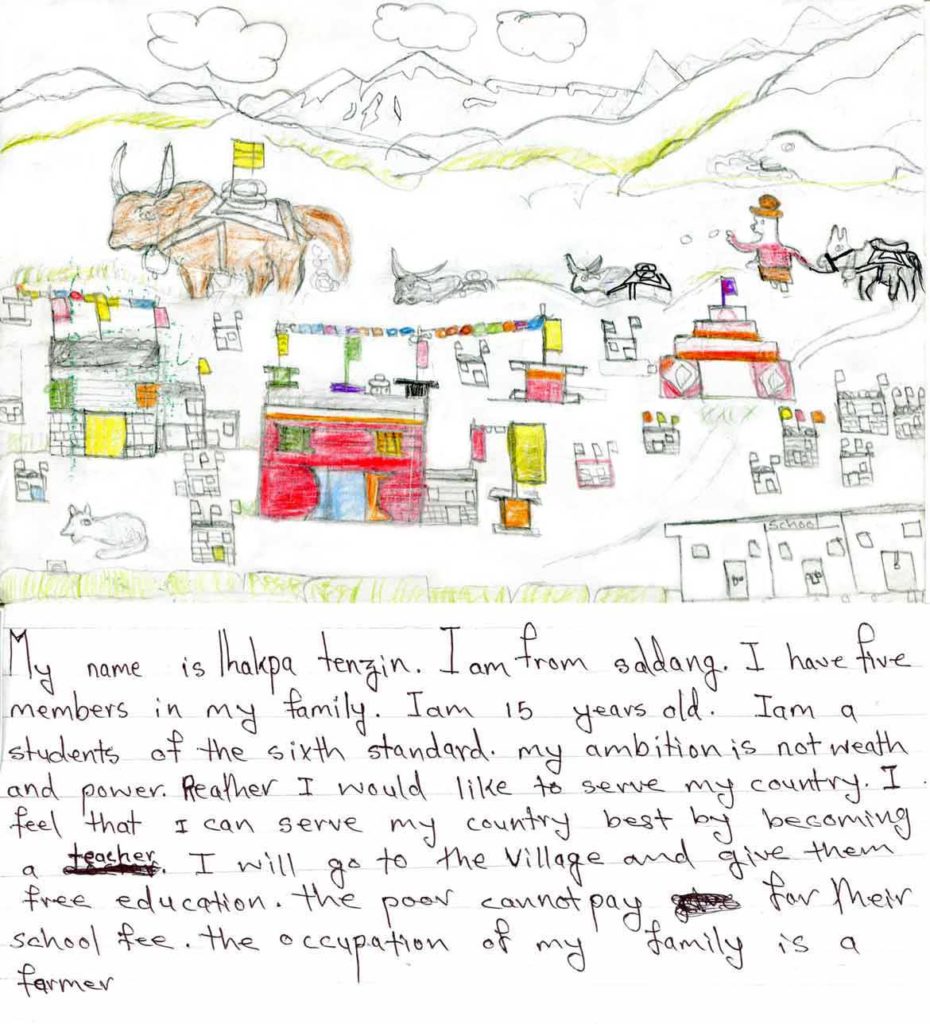 School
My name is lhakpa tenzin. I am from saldang. I have five
members in my family. I am 15 years old. I am a
students of the sixth standard. my ambition is not weath
and power. Reather I would like to serve my country. I
feel that I can serve my country best by becoming
a teacher. I will go to the village and give them
free education. the poor cannot pay for their
school fee. the occupation of my family is a
farmer